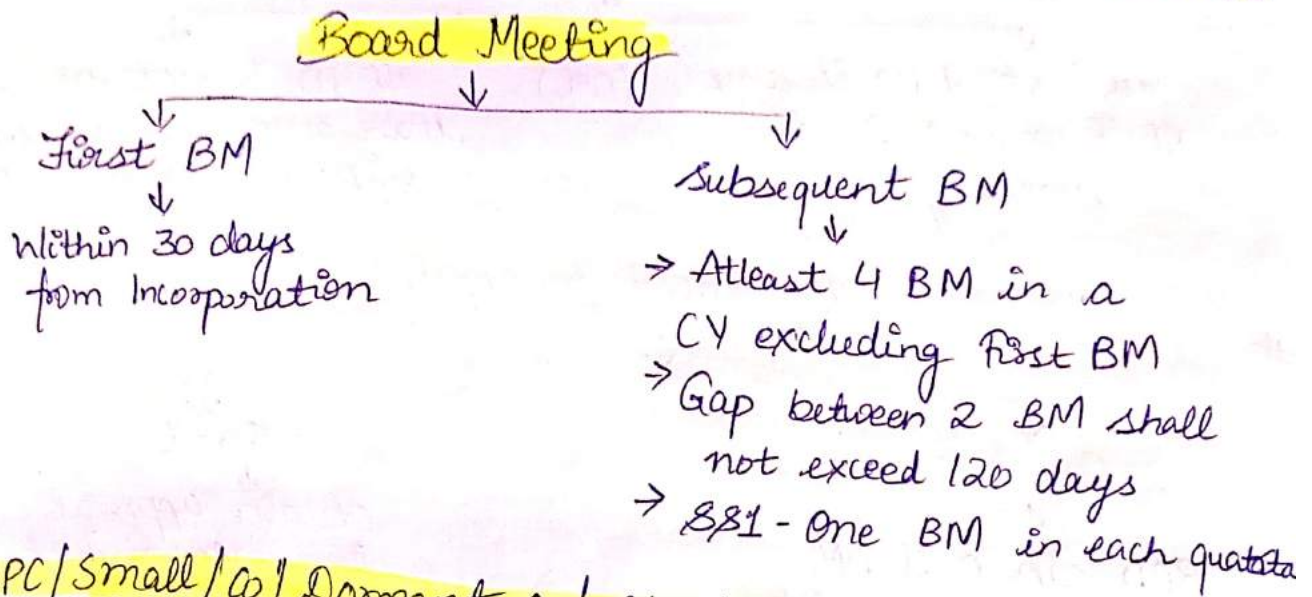 Board Meeting
First BM
Within 30 days
from Incorporation
Subsequent BM
→ Atleast 4 BM in a
CY excluding First BM
→ Gap between 2 BM shall
not exceed 120 days
→ SS1 - One BM in each
PC/Small/Co/ Dormant